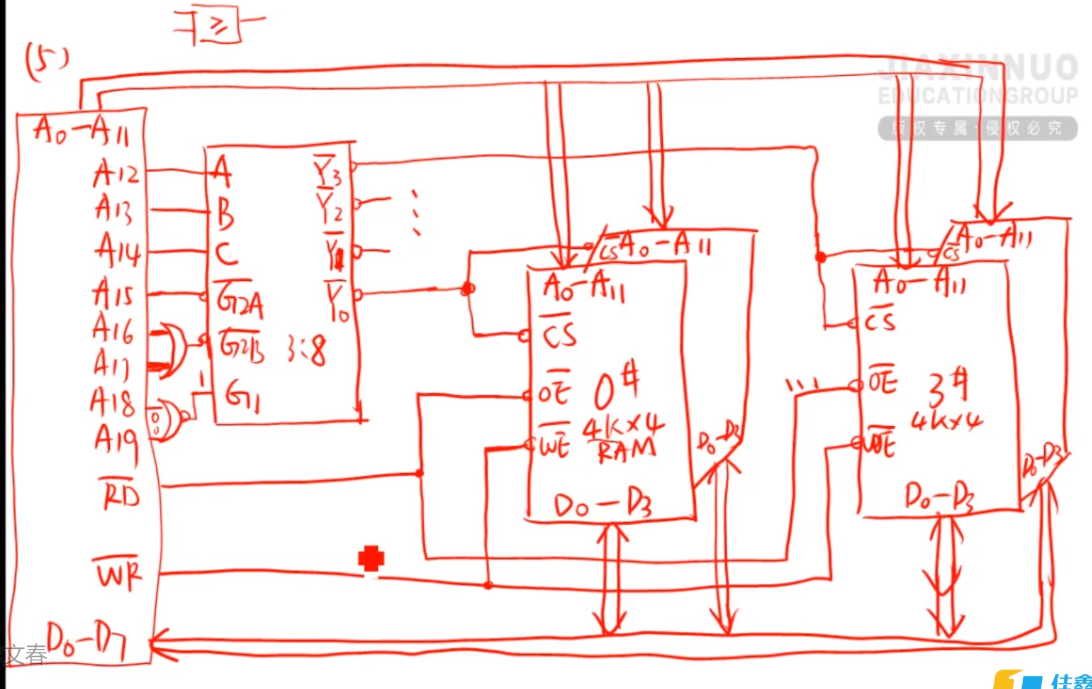 ≥
(5)
JIAXINNUO
EDUCATIONGROUP
版权专属·侵权必究
A0-A11
A12
A13
A14
A15
A16
A17
A18
A19
RD
WR
D0-D7
A
B
C
G2A
G2B 3:8
1
G1
Y3
Y2
Y1
Y0
CS A0-A11
A0-A11
CS
OE 0#
WE 4K×4
RAM
D0-D3
D0-D3
CS A0-A11
A0-A11
CS
OE 3#
4K×4
D0-D3
D0-D3
文春
佳鑫